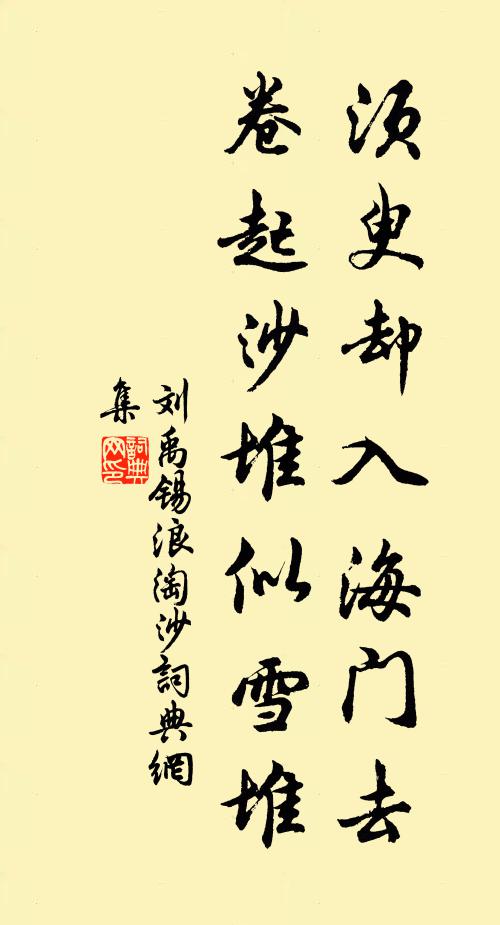 须臾却入海门去
卷起沙堆似雪堆
刘禹锡浪淘沙詞典網
集
詞典
网印